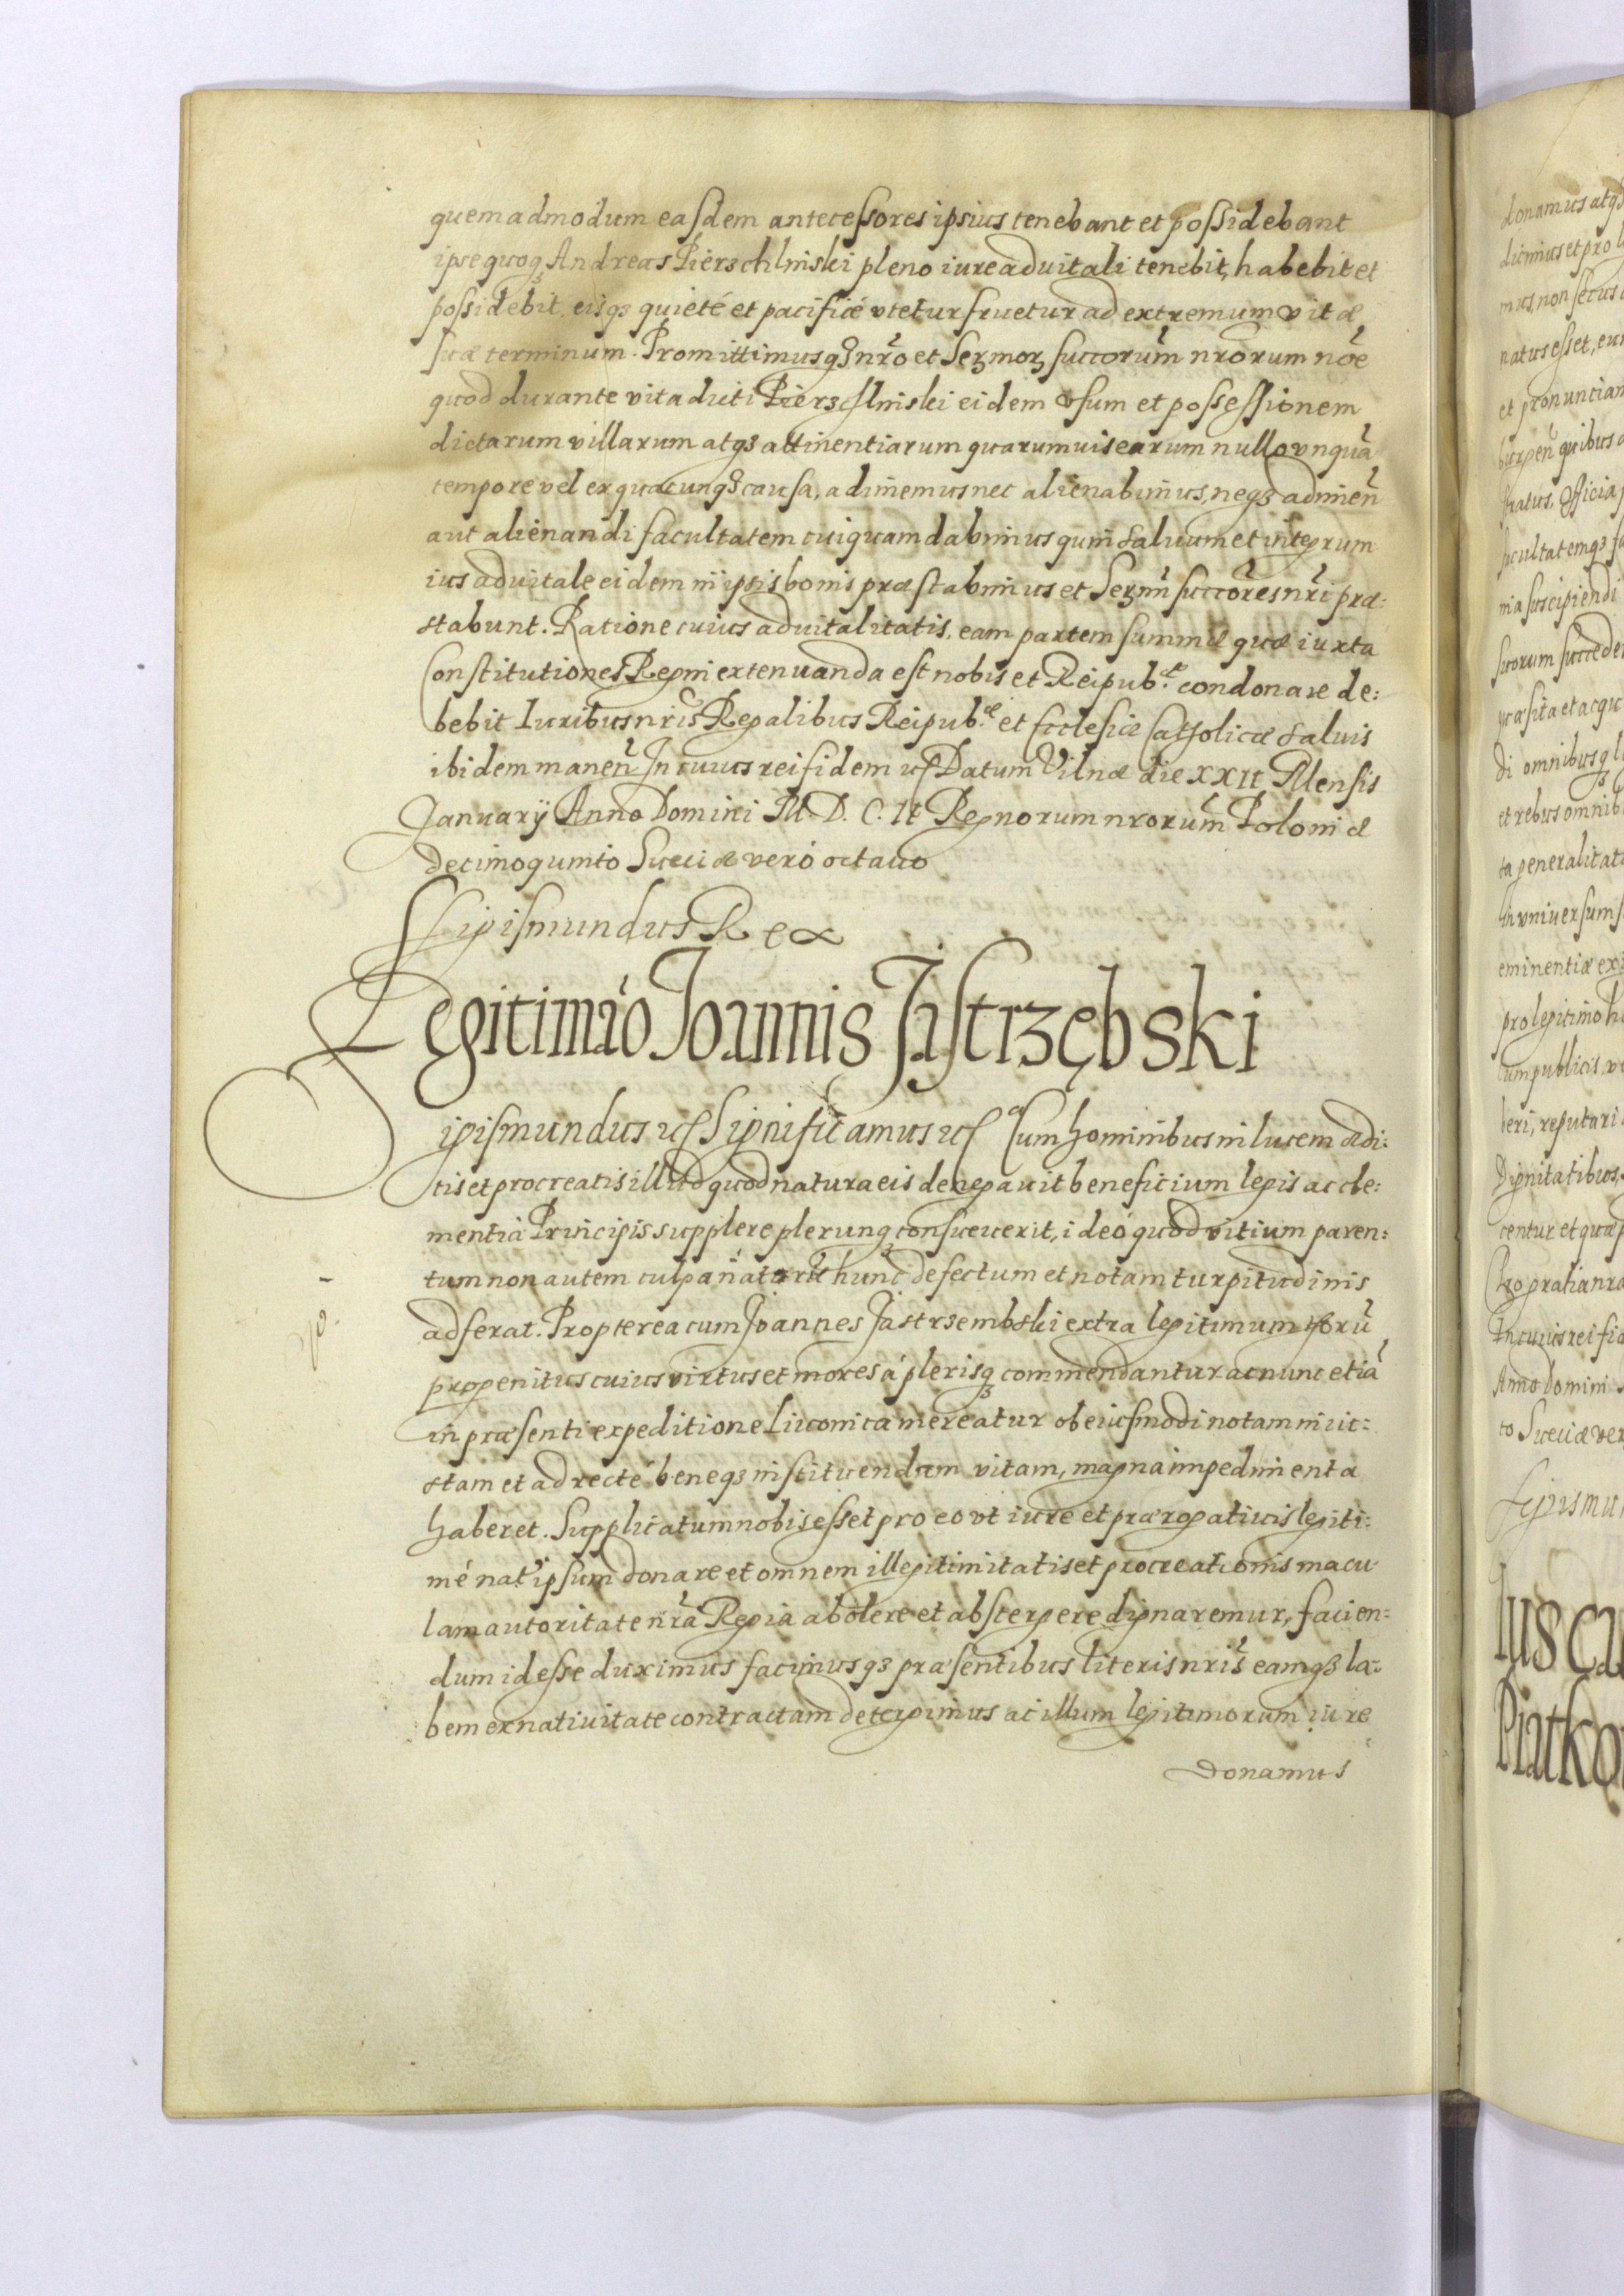 quemadmodum easdem antecessores ipsius tenebant et possidebant
ipse quoqꝫ Andreas Pierzchlinski pleno iure aduitali tenebit, habebit et
possidebit, eisqꝫ quieté et pacificé vtetur fruetur ad extremum vitæ
suæ terminum. Promittimusqꝫ nr̃o et Serꝫmorꝫ succorum̃ nrorum noẽ
quod durante vita dicti Pierzchlinski eidem vsum et possessionem
dictarum villarum atqꝫ attinentiarum quarumuis earum nullo vnquã
tempore vel ex quacunqꝫ causa, adimemus nec alienabimus, neqꝫ adimen̄
aut alienandi facultatem cuiquam dabimus quin saluum et integrum
ius aduitale eidem in ipsis bonis præstabimus et Serꝫmi succores̃ nrĩ præ:
stabunt. Ratione cuius aduitalitatis, eam partem summæ quæ iuxta
Constitutiones Regni extenuanda est nobis et Reipub.æ condonare de:
bebit Iuribus nris̃ Regalibus Reipub.æ et Ecclesiæ Catholicæ saluis
ibidem manen̄ In cuius rei fidem ec̃ Datum Vilnæ die XXII Mensis
Januarÿ Anno Domini M D. C. II Regnorum nrorum̃ Poloniæ
decimoquinto Sueciæ veró octauo
Sigismundus Rex
Legitimãо Joannis Jastrzębski
Sigismundus ec̃ Significamus ec̃ Cum hominibus in lucem ædi:
tis et procreatis illud quod natura eis denegauit beneficium legis ac cle:
mentia Principis supplere plerunqꝫ consueuerit, ideó quod vitium paren:
tum non autem culpa natorũ hunc defectum et notam turpitudinis
adferat. Propterea cum Joannes Jastrzembski extra legitimum thorũ
progenitus cuius virtus et mores á plerisqꝫ commendantur ac nunc etiã
in præsenti expeditione Liuonica mereatur ob eiusmodi notam iniu:
stam et ad recté beneqꝫ instituendam vitam, magna impedimenta
haberet. Supplicatum nobis esset pro eo vt iure et prærogatiuis legiti:
mé nat' ipsum donare et omnem illegitimitatis et procreationis macu
lam autoritate nrã Regia abolere et abstergere dignaremur, facien:
dum id esse duximus facimusqꝫ præsentibus literis nris̃ eamqꝫ la:
bem ex nativitate contractam detergimus ac illum legitimorum iure
donamus